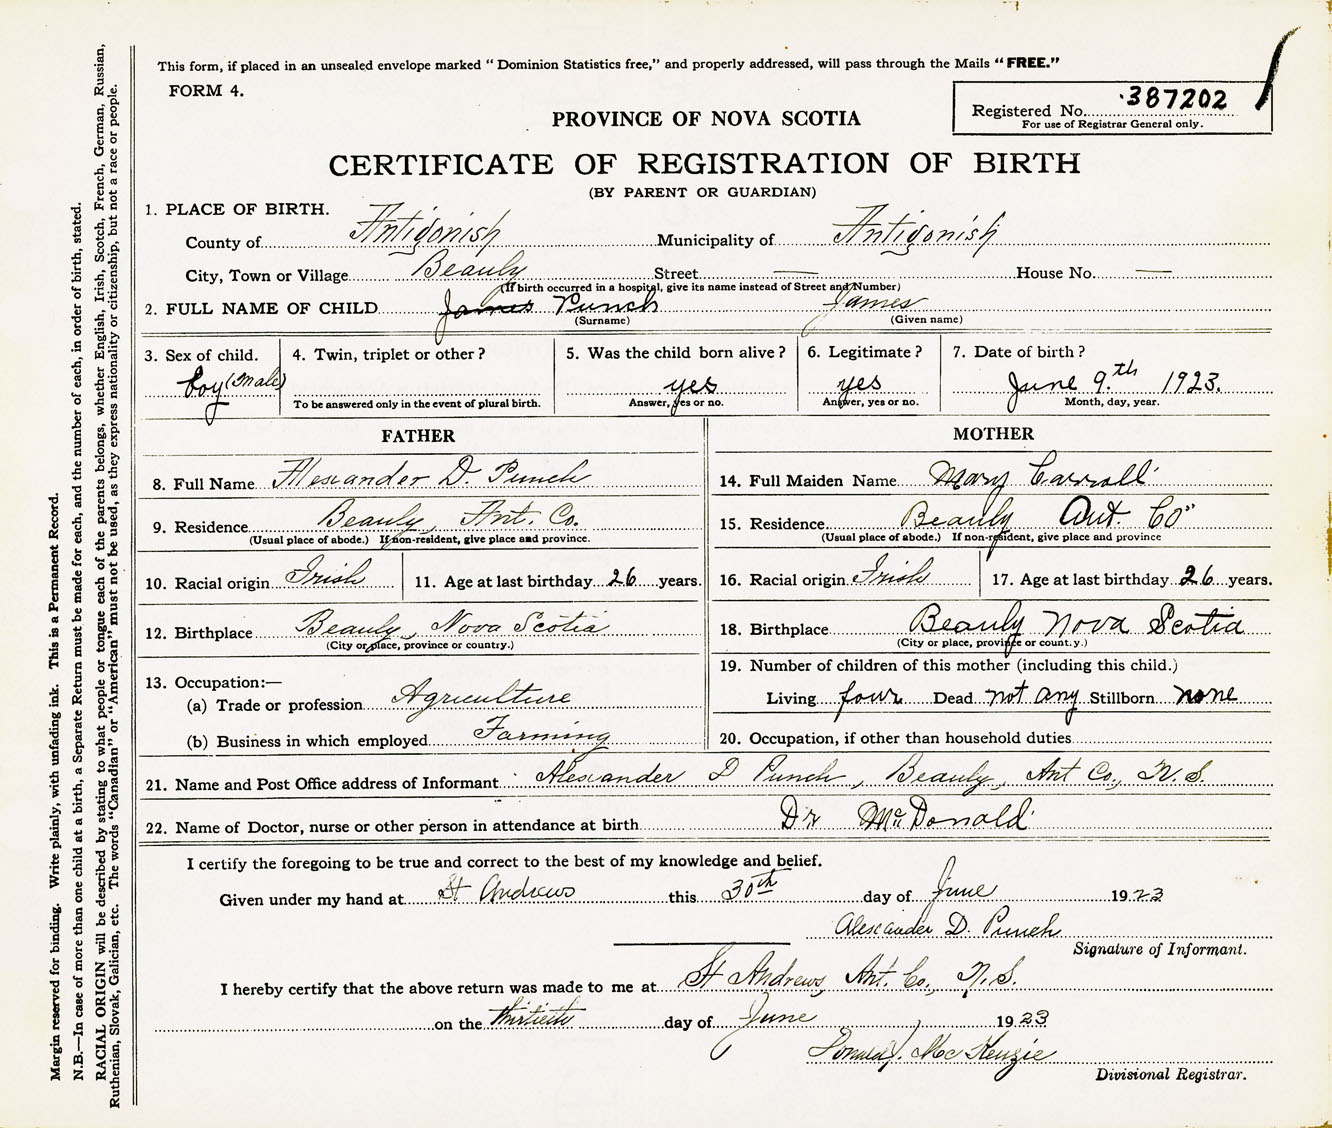 This form, if placed in an unsealed envelope marked " Dominion Statistics free," and properly addressed, will pass through the Mails " FREE."
FORM 4.
Registered No. 387202
For use of Registrar General only.
PROVINCE OF NOVA SCOTIA
CERTIFICATE OF REGISTRATION OF BIRTH
(BY PARENT OR GUARDIAN)
1. PLACE OF BIRTH.
County of Antigonish Municipality of Antigonish
City, Town or Village Beauly Street — House No. —
(If birth occurred in a hospital, give its name instead of Street and Number)
2. FULL NAME OF CHILD James Punch James
(Surname) (Given name)
3. Sex of child. 4. Twin, triplet or other ? 5. Was the child born alive ? 6. Legitimate ? 7. Date of birth ?
boy (Male) yes yes June 9.th 1923.
To be answered only in the event of plural birth. Answer, yes or no. Answer, yes or no. Month, day, year.
FATHER
8. Full Name Alexander D. Punch
9. Residence Beauly, Ant. Co.
(Usual place of abode.) If non-resident, give place and province.
10. Racial origin Irish 11. Age at last birthday 26 years.
12. Birthplace Beauly, Nova Scotia
(City or place, province or country.)
13. Occupation:—
(a) Trade or profession Agriculture
(b) Business in which employed Farming
MOTHER
14. Full Maiden Name Mary Carroll
15. Residence Beauly Ant. Co"
(Usual place of abode.) If non-resident, give place and province
16. Racial origin Irish 17. Age at last birthday 26 years.
18. Birthplace Beauly Nova Scotia
(City or place, province or count.y.)
19. Number of children of this mother (including this child.)
Living four Dead not any Stillborn none
20. Occupation, if other than household duties
21. Name and Post Office address of Informant Alexander D Punch, Beauly, Ant Co., N.S.
22. Name of Doctor, nurse or other person in attendance at birth Dr McDonald
I certify the foregoing to be true and correct to the best of my knowledge and belief.
Given under my hand at St Andrews this 30th day of June 1923
Alexander D. Punch
Signature of Informant.
I hereby certify that the above return was made to me at St Andrews, Ant. Co., N.S.
on the thirtieth day of June 1923
Donald J. McKenzie
Divisional Registrar.
Margin reserved for binding. Write plainly, with unfading ink. This is a Permanent Record.
N.B.—In case of more than one child at a birth, a Separate Return must be made for each, and the number of each, in order of birth, stated.
RACIAL ORIGIN will be described by stating to what people or tongue each of the parents belongs, whether English, Irish, Scotch, French, German, Russian,
Ruthenian, Slovak, Galician, etc. The words "Canadian" or "American" must not be used, as they express nationality or citizenship, but not a race or people.